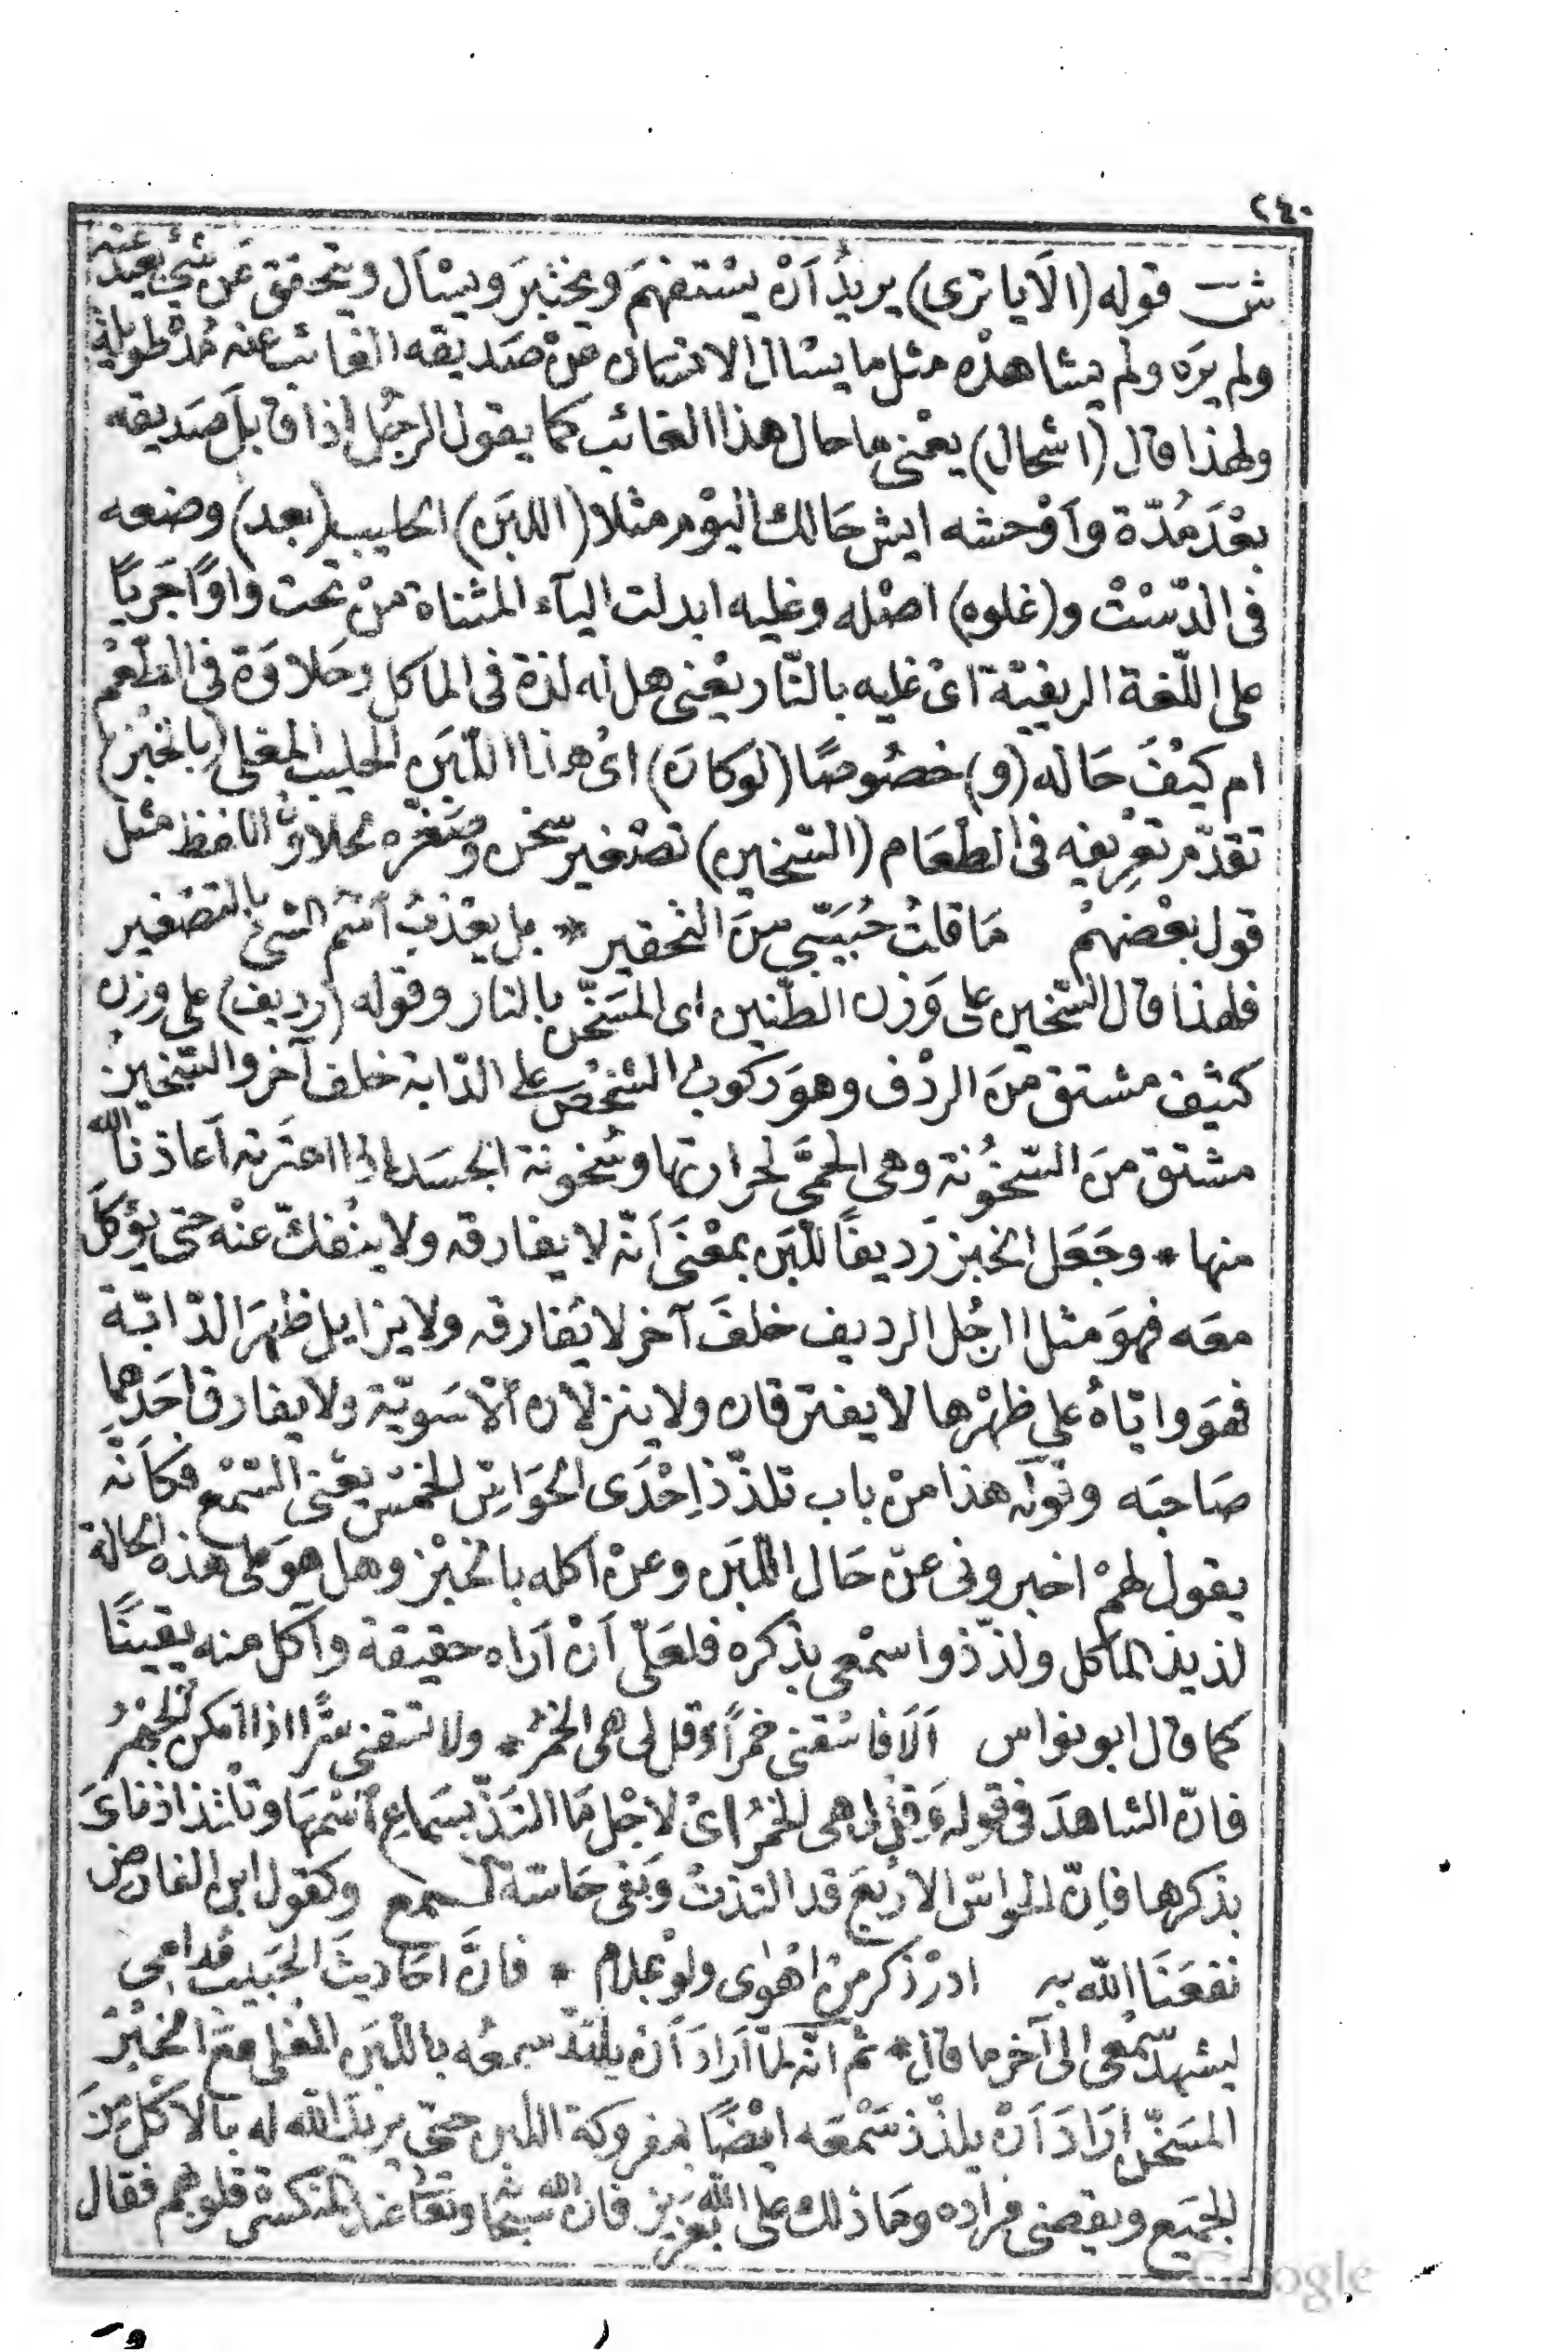 ٢٤٠
ش قوله (الَاَيا ترى) يريدُ اَنْ يسْتفهمَ ويختبرَ ويسْاَل ويتحقق عَن شئ بَعيد عنه
ولم يرَه ولم يشاهدْه مثل ما يسْال الانسَان عنْ صَديقه الغائب عنه مُدّ طويلة
ولهذا قال (اشحال) يعْنى ما حال هذا الغائب كما يقول الرجُل اذا قابلَ صَديقه
بعْدَ مُدّة وَاَوْحشه ايش حَالك اليَوْم مثلا (اللبَن) الحليب (بعد) وضعه
فى الدّسْتْ و(غلوه) اصْله وغليه ابدلت اليآء المثناة منْ تحت وَاوًا جَريًا
على اللّغة الريفيّة اىْ غليه بالنّار يعْنى هل له لذة فى الماكل وحَلاوَة فى الطّعْم
ام كيْفَ حَاله (و) خصُوصًا (لوكانَ) اىْ هذا اللّبَن الحليب المغلى (بالخبْز)
تقدّم تعْرِيفه فى الطعَام (السّخين) تصْغير سخن وصَغّره لحلاوَة اللفظ مثل
قول بعْضهمْ مَا قلتُ حُبَيِّبى منَ التحقير * بل يعْذبُ اسْم الشئ بالتصْغير
فلهذا قال السّخين على وَزن الطّنين اى المسَخّن بالنار وقوله (رديف) على وزن
كثيف مشتق منَ الردْف وهوَ ركوبُ الشخْص على الدّابة خلف آخر والسّخينُ
مشتق منَ السّخُونة وهى الحمَّى لحرارتها وسُخونة الجسَد اذا اعتَرته اَعاذنا الله
منها * وجَعَل الخبز رَديفًا للّبَن بمعْنَى اَنّه لا يفارقه ولا ينْفكّ عنْه حتى يؤكلَ
معَه فهوَ مثل الرجُل الرديف خلفَ آخر لا يُفارقه ولا يزايل ظهرَ الدّابّة
فهوَ وايّاهُ على ظهْرها لا يفترقان ولا ينزلان اِلاّ سَويّة ولا يفارق احَدهما
صَاحبَه وقوله هذا منْ باب تلذّذ اِحْدَى الحَوَاسّ الخمسْ يعْنى السّمْع فكاَنّه
يقولُ لهمْ اخبرونى عنْ حَال اللّبَن وعنْ اكله بالخبْز وهل هوَ على هذه الحالة
لذيذ المأكل ولذّذوا سمْعى بذكره فلعَلّى اَنْ اَرَاه حقيقة وآكل منه يقينًا
كما قال ابونواس اَلَا فاسْقنى خمرًا وَقل لى هى الخمْرُ * ولا تسْقنى سرًّا اذا امكن الجهْرُ
فانّ الشاهدَ فى قوله وَقل لى هى الخمْرُ اىْ لاجْل مَا التذّ بسَماع اسْمهَا وتلتذ اذناىَ
بذكرها فاِنّ الحواسّ الاربَعَ قد التذتْ وَبقى حَاسّة السمع وكقول ابن الفارض
نفعَنَا الله به ادرْ ذكر منْ اهْوٰى ولوْ بملام * فانَّ احَاديثَ الحَبيب مُدامى
ليشهد سمْعى الى آخر ما قال * ثم اَنّه لمّا اَرَادَ اَنْ يلتذّ سمعُه باللّبَن المغلى معَ الخبْز
المسَخّن اَرَادَ اَنْ يلذّذ سَمْعَه ايضًا بمفروكة اللبن حتى يريد الله له بالاكل منَ
الجميَع ويقضى مراده ومَا ذلك على الله بعَزيز فان الله سبحَانه وتعَا عندَ المنكسرَة قلوبهم فقال